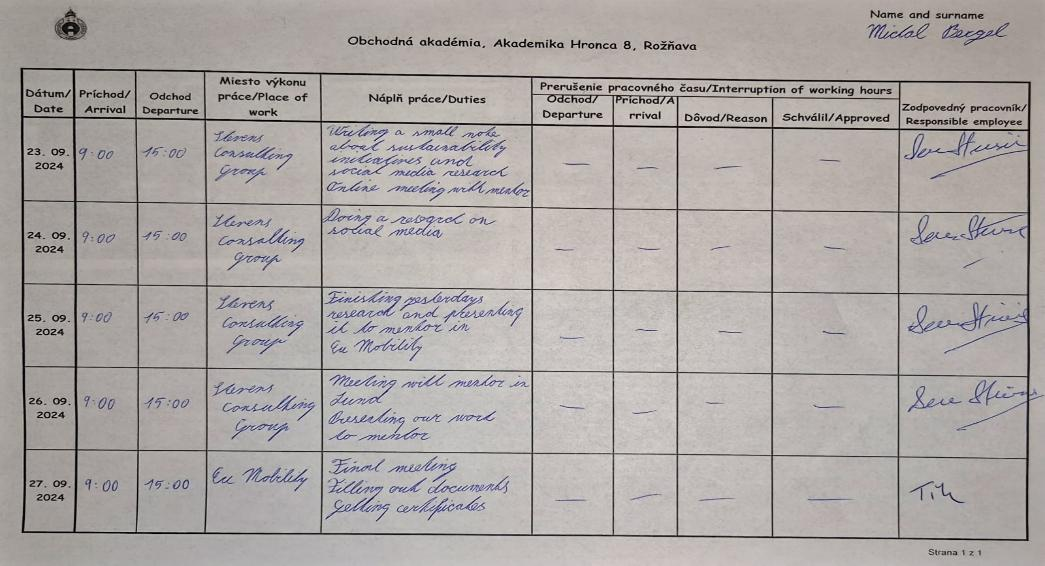 Name and surname
Michal Bergel
Obchodná akadémia, Akademika Hronca 8, Rožňava
Dátum/ Date
Príchod/ Arrival
Odchod Departure
Miesto výkonu práce/Place of work
Náplň práce/Duties
Prerušenie pracovného času/Interruption of working hours
Odchod/ Departure
Príchod/A rrival
Dôvod/Reason
Schválil/Approved
Zodpovedný pracovník/ Responsible employee
23. 09. 2024
9:00
15:00
Stevens
Consulting
Group
Writing a small note
about sustainability
initiatives and
social media research
Online meeting with mentor
— — — —
24. 09. 2024
9:00
15:00
Stevens
Consulting
Group
Doing a research on
social media
— — — —
25. 09. 2024
9:00
15:00
Stevens
Consulting
Group
Finishing yesterdays
research and presenting
it to mentor in
Eu Mobility
— — — —
26. 09. 2024
9:00
15:00
Stevens
Consulting
Group
Meeting with mentor in
Lund
Presenting our work
to mentor
— — — —
27. 09. 2024
9:00
15:00
Eu Mobility
Final meeting
Filling out documents
Getting certificates
— — — —
Strana 1 z 1